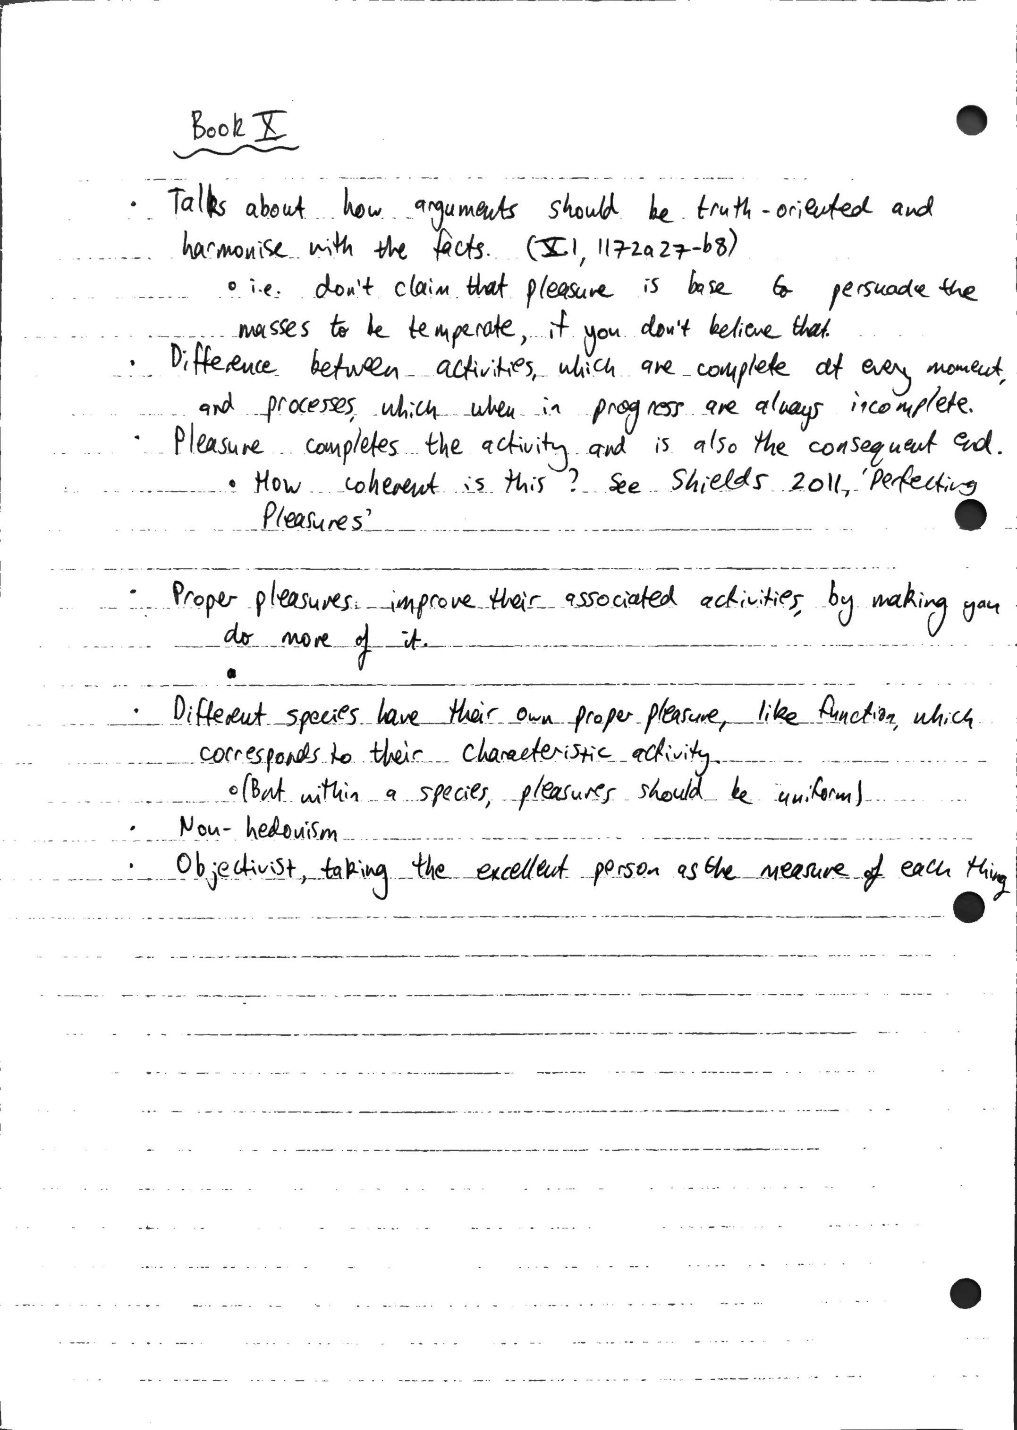 Book X
• Talks about how arguments should be truth-oriented and
harmonise with the facts. (X1, 1172a27-b8)
○ i.e. don't claim that pleasure is base to persuade the
masses to be temperate, if you don't believe that.
• Difference between activities, which are complete at every moment,
and processes, which when in progress are always incomplete.
• Pleasure completes the activity and is also the consequent end.
• How coherent is this? See Shields 2011, 'Perfecting
Pleasures'
• Proper pleasures: improve their associated activities, by making you
do more of it.
•
• Different species have their own proper pleasure, like function, which
corresponds to their characteristic activity.
○ (But within a species, pleasures should be uniform)
• Non-hedonism
• Objectivist, taking the excellent person as the measure of each thing